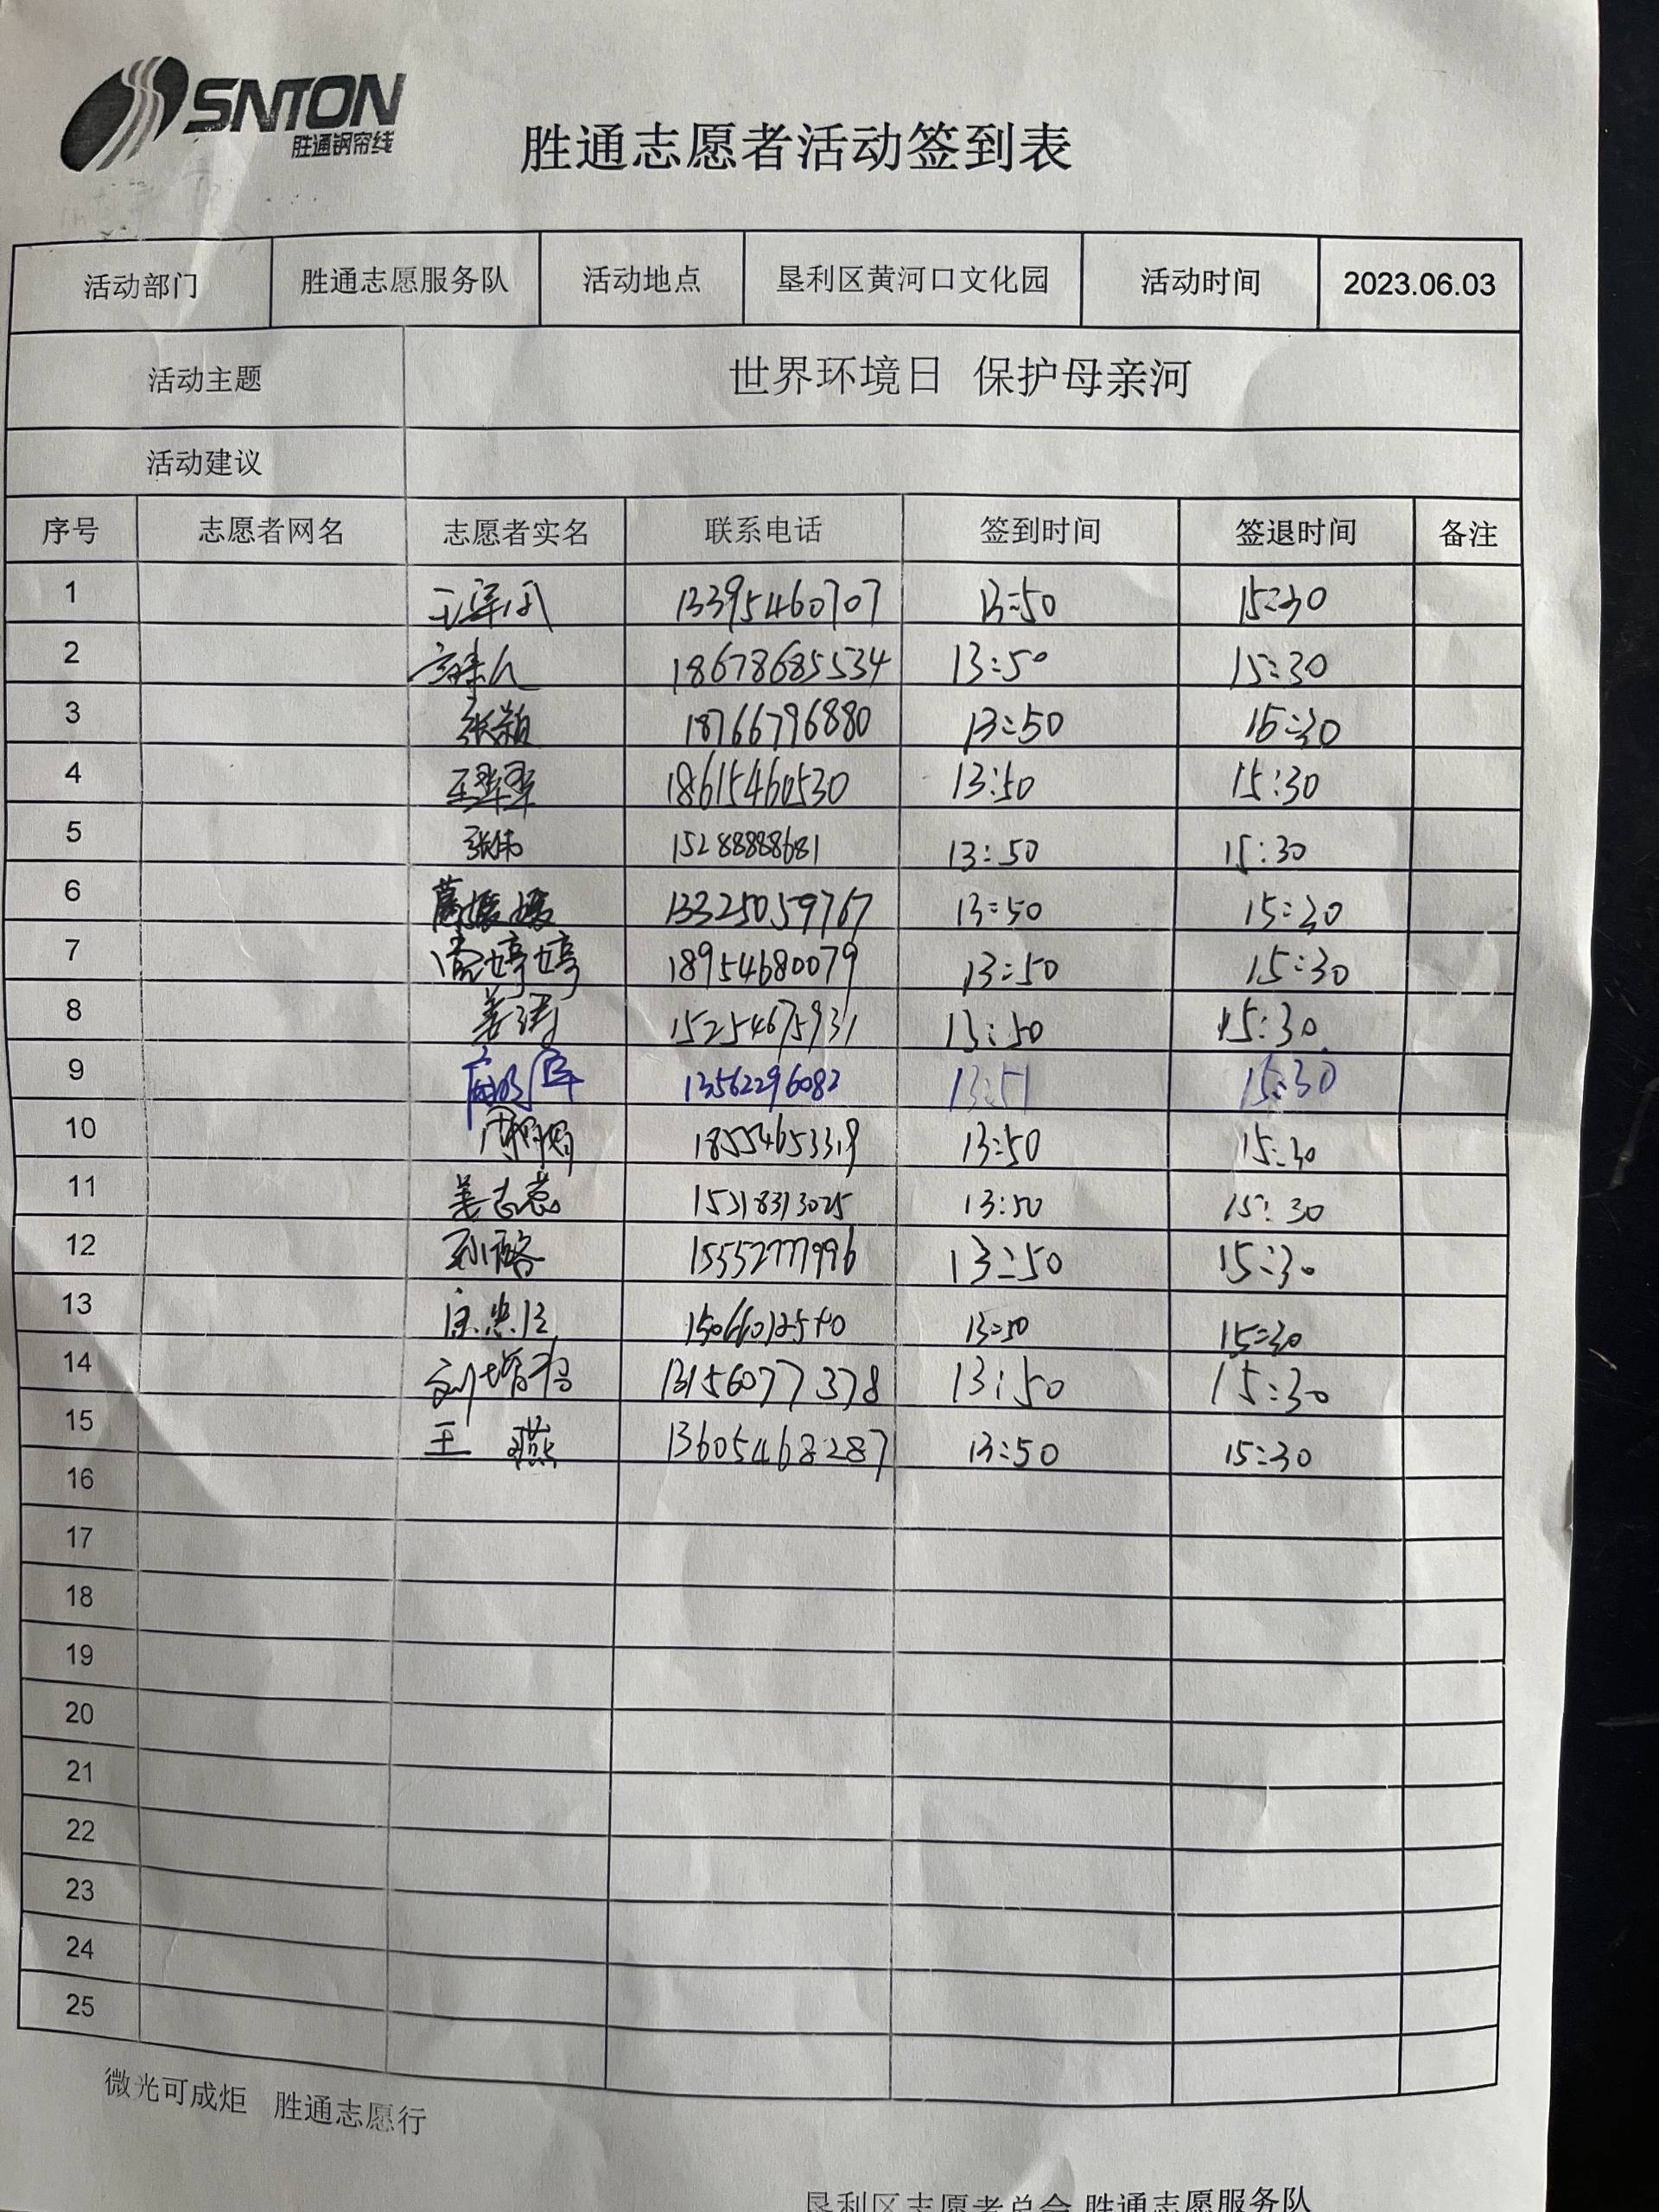 SNTON
胜通钢帘线
胜通志愿者活动签到表
活动部门 胜通志愿服务队 活动地点 垦利区黄河口文化园 活动时间 2023.06.03
活动主题 世界环境日 保护母亲河
活动建议
序号 志愿者网名 志愿者实名 联系电话 签到时间 签退时间 备注
1 13395460707 13:50 15:30
2 18678685534 13:50 15:30
3 张颖 18766796880 13:50 15:30
4 王翠翠 18615460530 13:50 15:30
5 张伟 15288888681 13:50 15:30
6 13325059767 13:50 15:30
7 尚婷婷 18954680079 13:50 15:30
8 姜涛 15254675931 13:50 15:30
9 13562296082 13:51 15:30
10 18554653319 13:50 15:30
11 姜志蕊 15318313025 13:50 15:30
12 15552777996 13:50 15:30
13 13:50 15:30
14 13156077378 13:50 15:30
15 王燕 13605468287 13:50 15:30
16
17
18
19
20
21
22
23
24
25
微光可成炬 胜通志愿行
垦利区志愿者总会 胜通志愿服务队